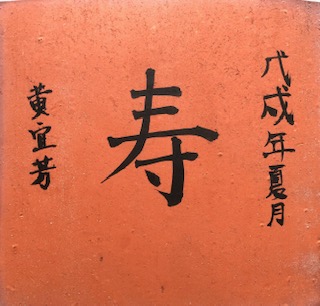 戊戌年夏月
寿
黄宜芳